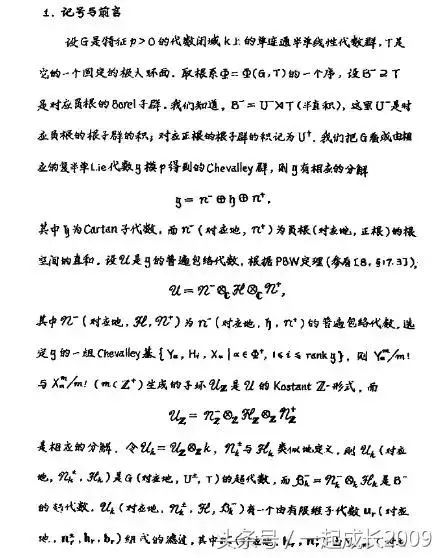 1. 记号与前言
设G是特征p>0的代数闭域k上的单连通半单线性代数群,T是
它的一个固定的极大环面.取根系Φ=Φ(G,T)的一个序,设B⁻⊇T
是对应负根的Borel子群.我们知道,B⁻=U⁻⋊T(半直积),这里U⁻是对
应负根的根子群的积;对应正根的根子群的积记为U⁺.我们把G看成由相
应的复半单Lie代数𝔤模p得到的Chevalley群,则𝔤有相应的分解
𝔤=n⁻⊕𝔥⊕n⁺,
其中𝔥为Cartan子代数,而n⁻(对应地,n⁺)为负根(对应地,正根)的根
空间的直和.设𝒰是𝔤的普遍包络代数,根据PBW定理(参看[8,§17.3]),
𝒰=𝒩⁻⊗_ℂℋ⊗_ℂ𝒩⁺,
其中𝒩⁻(对应地,ℋ,𝒩⁺)为n⁻(对应地,𝔥,n⁺)的普遍包络代数.选
定𝔤的一组Chevalley基{Yα,Hi,Xα|α∈Φ⁺,1≤i≤rank𝔤},则Yα^m/m!
与Xα^m/m!(m∈Z⁺)生成的子环𝒰_Z是𝒰的Kostant Z-形式,而
𝒰_Z=𝒩_Z⁻⊗_Zℋ_Z⊗_Z𝒩_Z⁺
是相应的分解.令𝒰_k=𝒰_Z⊗_Z k,𝒩_k^±与ℋ_k类似地定义,则𝒰_k(对应
地,𝒩_k^±,ℋ_k)是G(对应地,U^±,T)的超代数,而ℬ_k⁻=𝒩_k⁻⊗_kℋ_k是B⁻
的超代数.𝒰_k(对应地,𝒩_k^±,ℋ,ℬ_k⁻)有一个由有限维子代数u_r(对应
地,n_r^±,h_r,b_r)组成的滤过,其中
头条号/一起成长2009